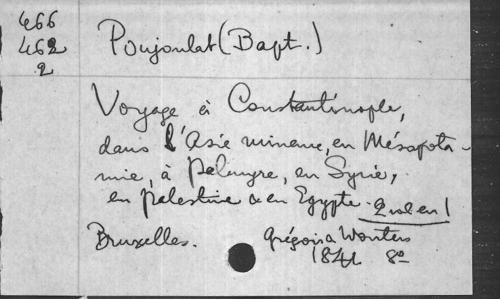 466
462
2
Poujoulat (Bapt.)
Voyage à Constantinople,
dans l'Asie mineure, en Mésopota-
mie, à Palmyre, en Syrie,
en Palestine & en Egypte. 2 vol en 1
Bruxelles. Grégoir & Wouters
1841 8º